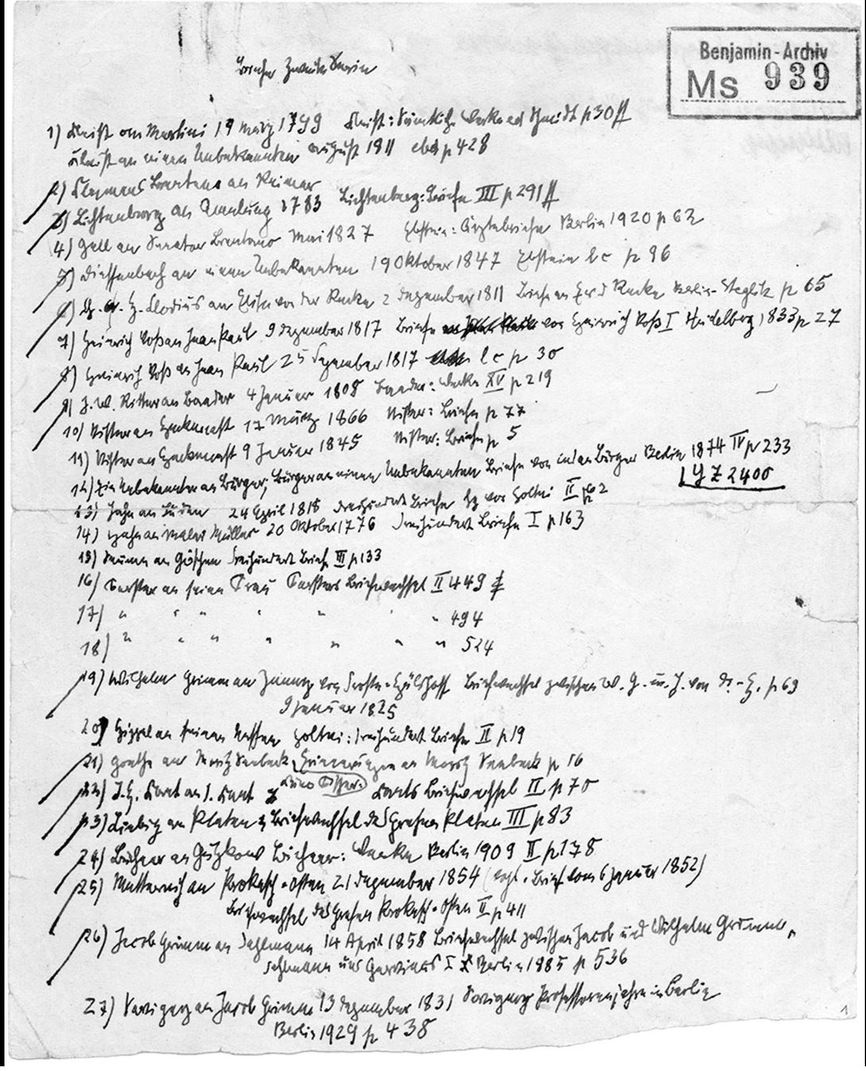 Benjamin-Archiv
Ms 939
Briefe Zweite Serie
1) Kleist an Martini 19 März 1799 Kleist: Werke ed Schmidt p 30ff
Kleist an einen Unbekannten August 1811 ebd p 428
2) Clemens Brentano an Reimer
3) Lichtenberg an Amelung 1783 Lichtenberg: Briefe III p 291ff
4) Gall an Senator Brentano Mai 1827 Ebstein: Ärztebriefe Berlin 1920 p 62
5) Dieffenbach an einen Unbekannten 19 Oktober 1847 Ebstein l c p 96
6) Ch. A. H. Clodius an Elisa von der Recke 2 Dezember 1811 Briefe an E v d Recke Berlin-Steglitz p 65
7) Heinrich Voß an Jean Paul 9 Dezember 1817 Briefe von Heinrich Voß I Heidelberg 1833 p 27
8) Heinrich Voß an Jean Paul 25 Dezember 1817 l c p 30
9) J. W. Ritter an Baader 4 Januar 1808 Baader: Werke XV p 219
10) Stifter an Heckenast 17 März 1866 Stifter: Briefe p 77
11) Stifter an Heckenast 9 Januar 1845 Stifter: Briefe p 5
12) Die Unbekannte an Bürger, Bürger an einen Unbekannten Briefe von und an Bürger Berlin 1874 IV p 233
Yz 2400
13) Jahn an 24 April 1818 Dreihundert Briefe hg von Holtei II p 2
14) Hahn an Maler Müller 20 Oktober 1776 Dreihundert Briefe I p 163
15) Seume an Göschen Dreihundert Briefe III p 133
16) Forster an seine Frau Forsters Briefwechsel II 449
17) " " " " " 494
18) " " " " " " 524
19) Wilhelm Grimm an Jenny von Droste-Hülshoff Briefwechsel zwischen W. G. u. J. von D.-H. p 69
9 Januar 1825
20) Hippel an seinen Neffen Holtei: Dreihundert Briefe II p 19
21) Goethe an Moritz Seebeck, Erinnerungen an Moritz Seebeck p 16
22) J. H. Kant an I. Kant Kants Briefwechsel II p 70
23) Liebig an Platen Briefwechsel des Grafen Platen III p 83
24) Büchner an Gutzkow Büchner: Werke Berlin 1909 II p 178
25) Metternich an Prokesch-Osten 21 Dezember 1854 (vgl. Brief vom 6 Januar 1852)
Briefwechsel des Grafen Prokesch-Osten II p 411
26) Jacob Grimm an Dahlmann 14 April 1858 Briefwechsel zwischen Jacob und Wilhelm Grimm,
Dahlmann und Gervinus I Berlin 1885 p 536
27) Savigny an Jacob Grimm 13 Dezember 1831 Savignys Professorenjahre in Berlin
Berlin 1929 p 438
1